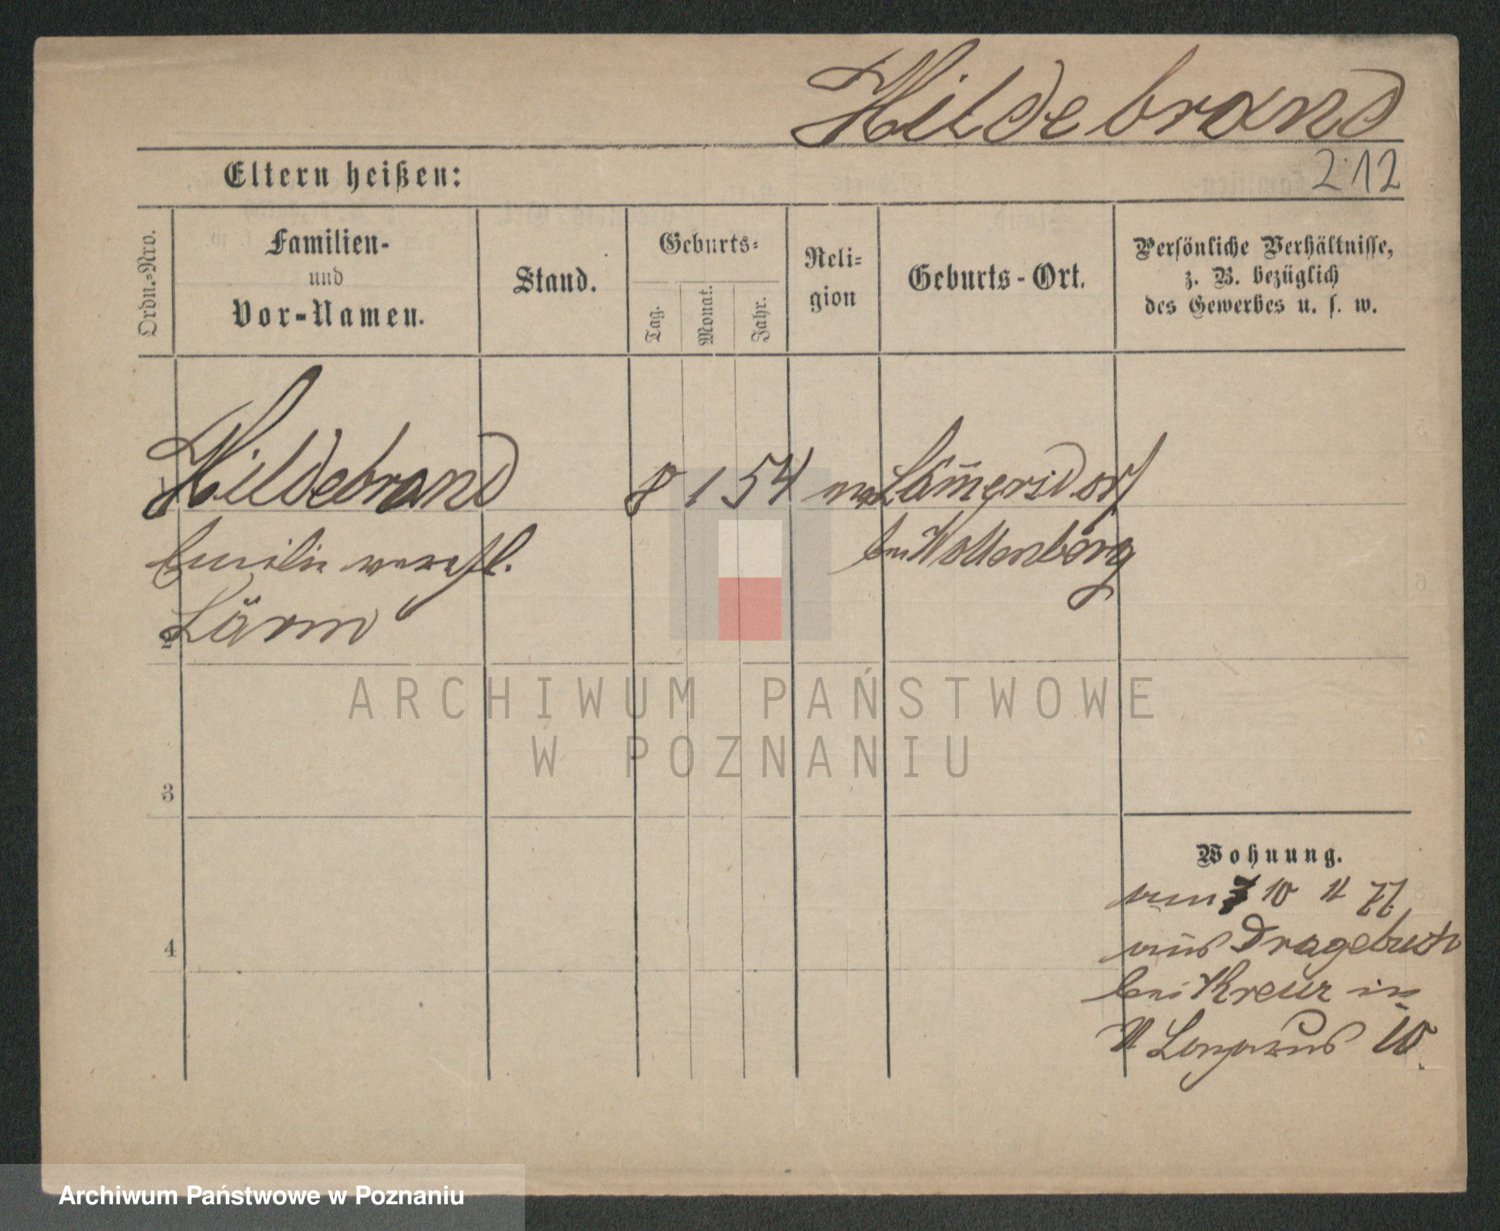 Hildebrand
212
Eltern heißen:
Ordn.-Nro.
Familien-
und
Vor-Namen.
Stand.
Geburts-
Tag.
Monat.
Jahr.
Reli-
gion
Geburts-Ort.
Persönliche Verhältnisse,
z. B. bezüglich
des Gewerbes u. s. w.
1
Hildebrand
8 1 54
Emilie verehl.
bei
2
3
4
Wohnung.
vom 10 11 77
aus Dragebruch
bei Kreuz in
10
ARCHIWUM PAŃSTWOWE
W POZNANIU
Archiwum Państwowe w Poznaniu